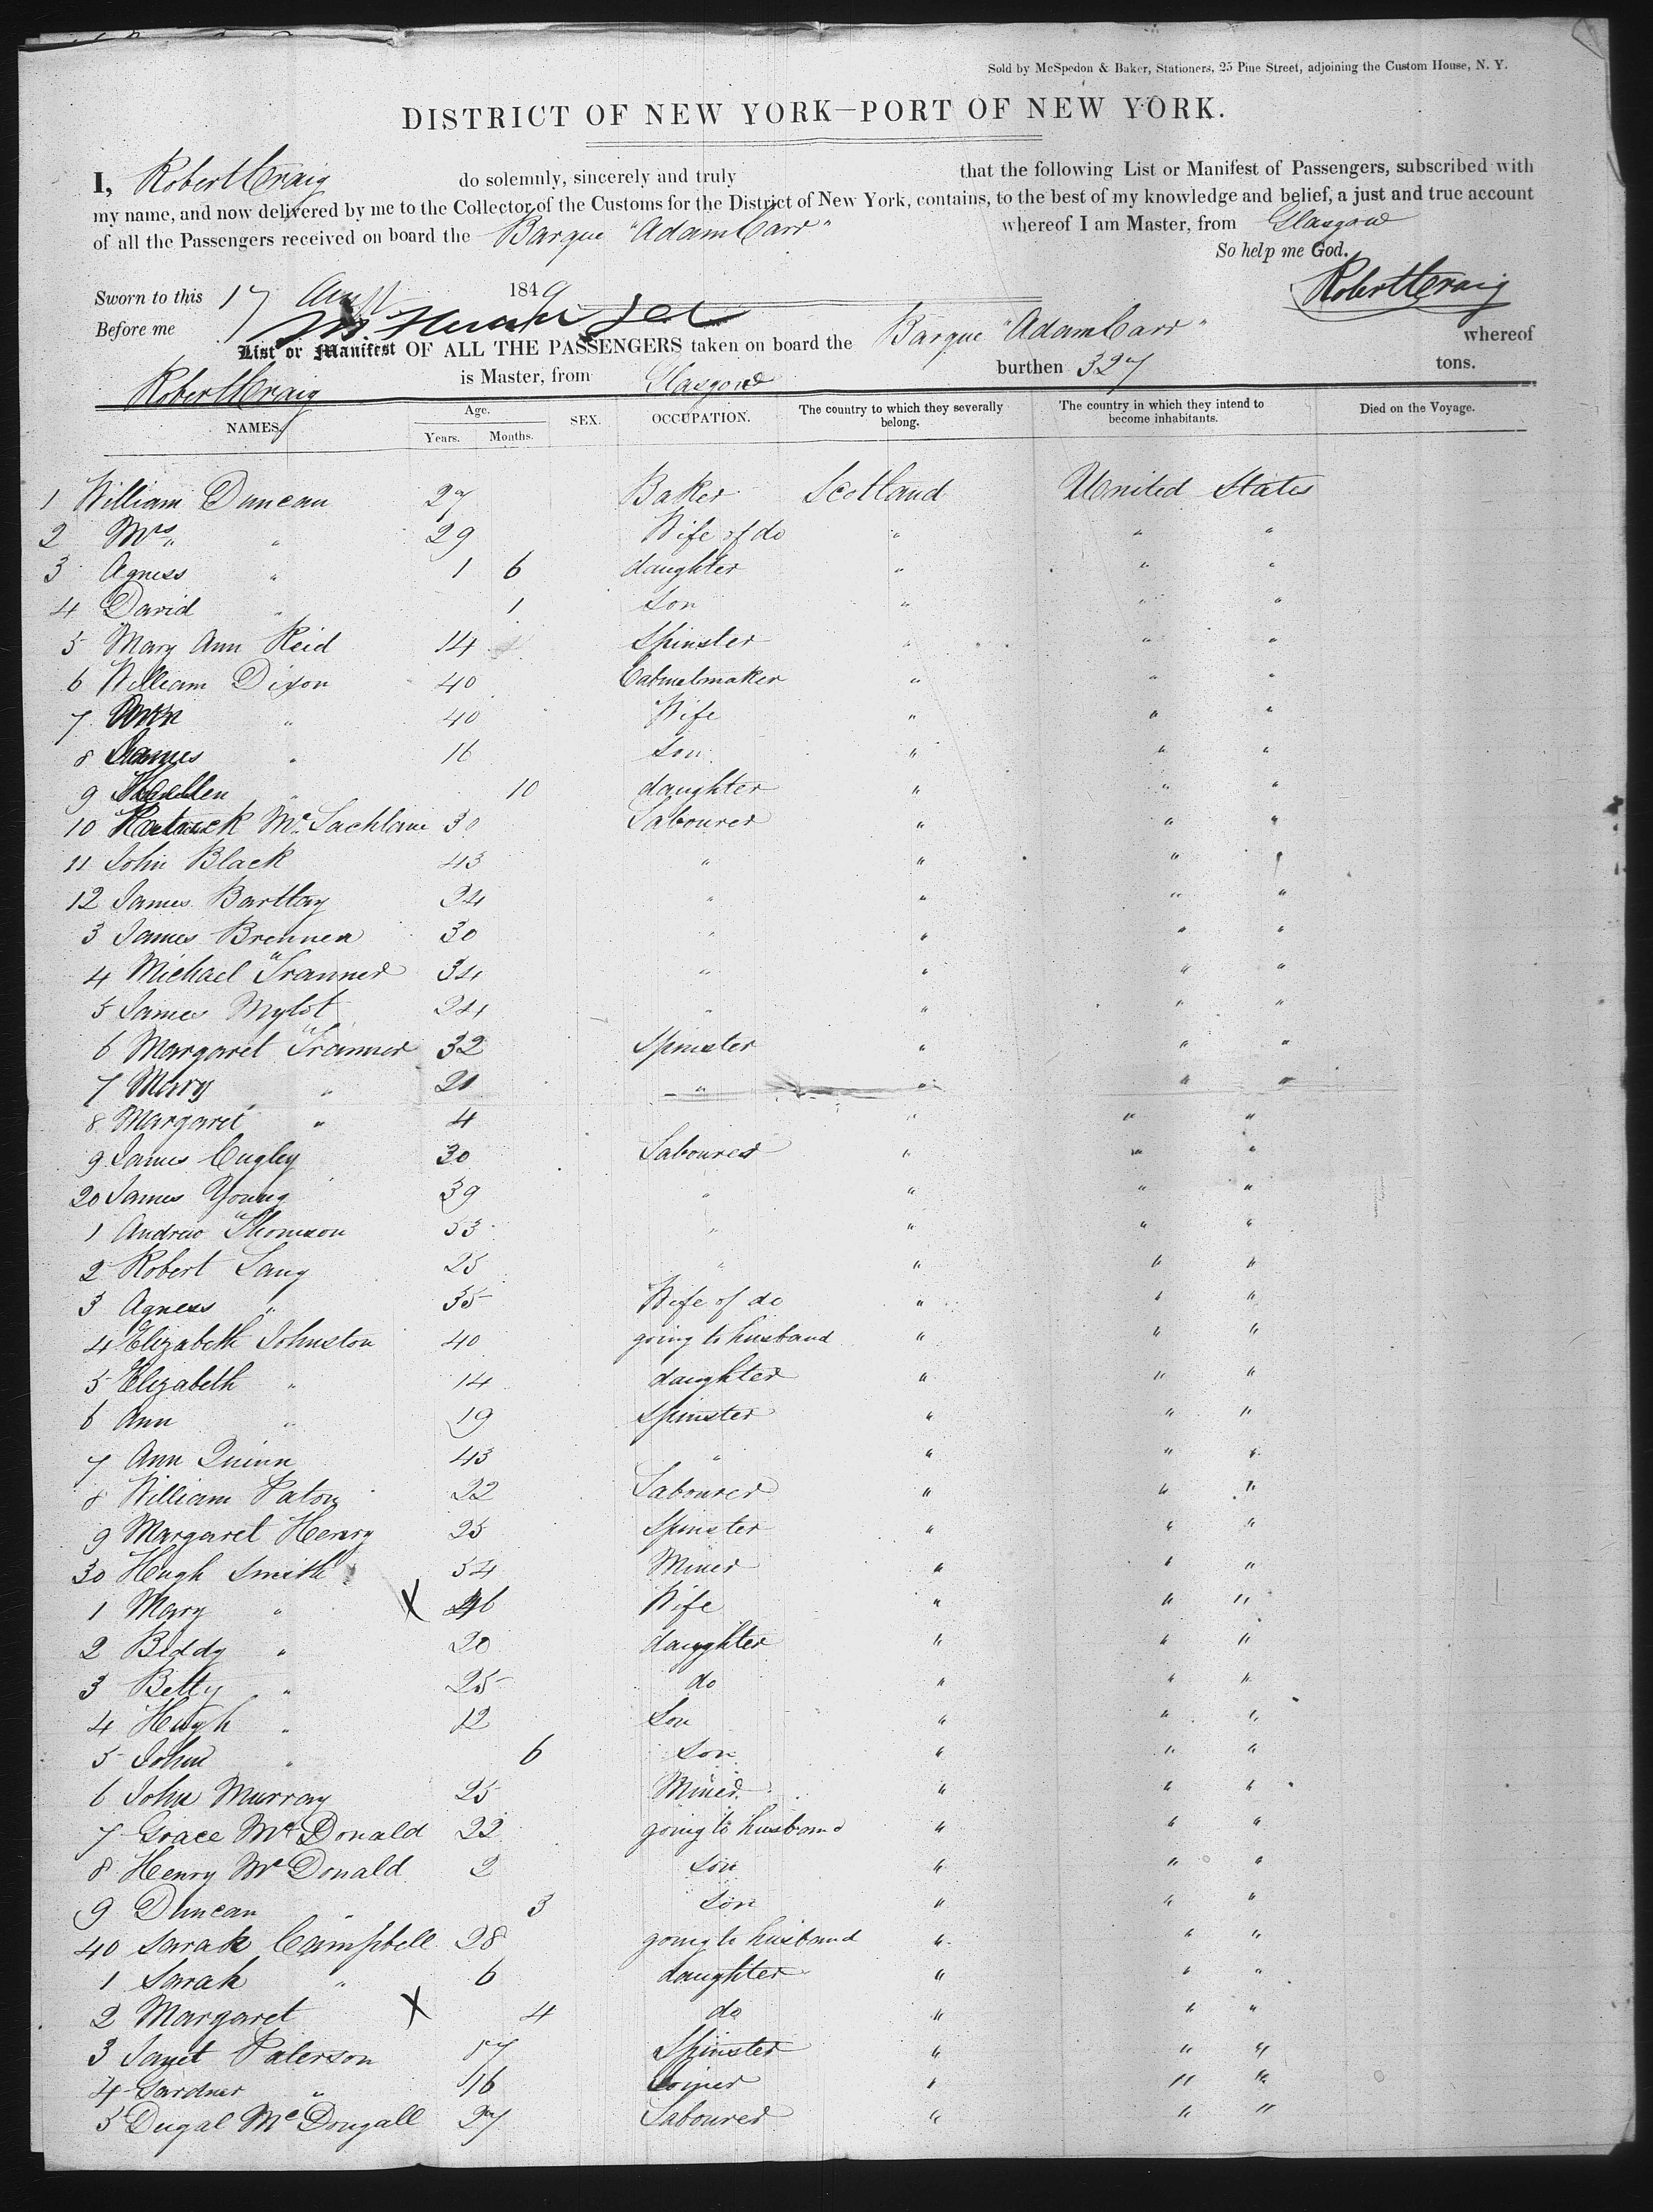 Sold by McSpedon & Baker, Stationers, 25 Pine Street, adjoining the Custom House, N. Y.
DISTRICT OF NEW YORK—PORT OF NEW YORK.
I, Robert Craig do solemnly, sincerely and truly that the following List or Manifest of Passengers, subscribed with
my name, and now delivered by me to the Collector of the Customs for the District of New York, contains, to the best of my knowledge and belief, a just and true account
of all the Passengers received on board the Barque "Adam Carr" whereof I am Master, from Glasgow
So help me God.
Sworn to this 17 Augt 1849 Robert Craig
Before me
List or Manifest OF ALL THE PASSENGERS taken on board the Barque "Adam Carr" whereof
Robert Craig is Master, from Glasgow burthen 327 tons.
NAMES. Age. Years. Months. SEX. OCCUPATION. The country to which they severally belong. The country in which they intend to become inhabitants. Died on the Voyage.
1 William Duncan 27 Baker Scotland United States
2 Mrs " " 29 Wife of do " " "
3 Agness " 1 6 daughter " " "
4 David " 1 Son " " "
5 Mary Ann Reid 14 Spinster " " "
6 William Dixon 40 Cabinetmaker " " "
7 Ann " 40 Wife " " "
8 James " 16 Son " " "
9 Hellen " 10 daughter " " "
10 Patrick McLachlane 30 Labourer " " "
11 John Black 43 " " " "
12 James Barttay 24 " " " "
3 James Brennen 30 " " " "
4 Michael Tranner 34 " " " "
5 James Mylot 24 " " " "
6 Margaret Trannor 32 Spinster " " "
7 Mary " 21 " " " "
8 Margaret " 4 " " "
9 James Cugley 30 Labourer " " "
20 James Young 39 " " " "
1 Andrew Thomson 53 " " " "
2 Robert Lang 25 " " " "
3 Agness " 35 Wife of do " " "
4 Elizabeth Johnston 40 going to husband " " "
5 Elizabeth " 14 daughter " " "
6 Ann " 19 Spinster " " "
7 Ann Quinn 43 " " " "
8 William Paton 22 Labourer " " "
9 Margaret Henry 25 Spinster " " "
30 Hugh Smith 54 Miner " " "
1 Mary " X 46 Wife " " "
2 Biddy " 20 daughter " " "
3 Betty " 25 do " " "
4 Hugh " 12 Son " " "
5 John " 6 Son " " "
6 John Murray 25 Miner " " "
7 Grace McDonald 22 going to husband " " "
8 Henry McDonald 2 Son " " "
9 Duncan " 3 Son " " "
40 Sarah Campbell 28 going to husband " " "
1 Sarah " 6 daughter " " "
2 Margaret X 4 do " " "
3 Janet Paterson 17 Spinster " " "
4 Gardner " 46 Joiner " " "
5 Dugal McDougall 27 Labourer " " "